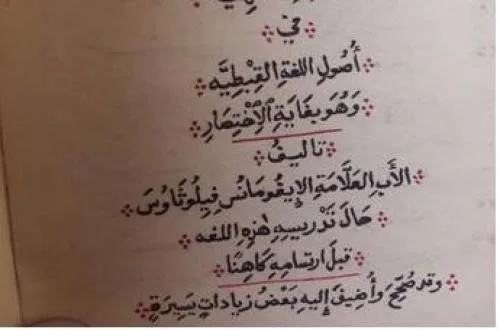 في
أُصُولِ اللغةِ القِبْطِيَّه
وَهُوَ بِغَايَةِ الِاخْتِصَارِ
تاليفُ
الأَبِ العَلَّامَةِ الإِيغُومَانُسِ فِيلُوثَاوُسَ
حَالَ تَدْرِيسِهِ هٰذِهِ اللغه
قبلَ ارتسامِهِ كَاهِنًا
وَقد صُحِّحَ وأُضِيفَ إِليهِ بَعْضُ زياداتٍ يَسِيرَةٍ